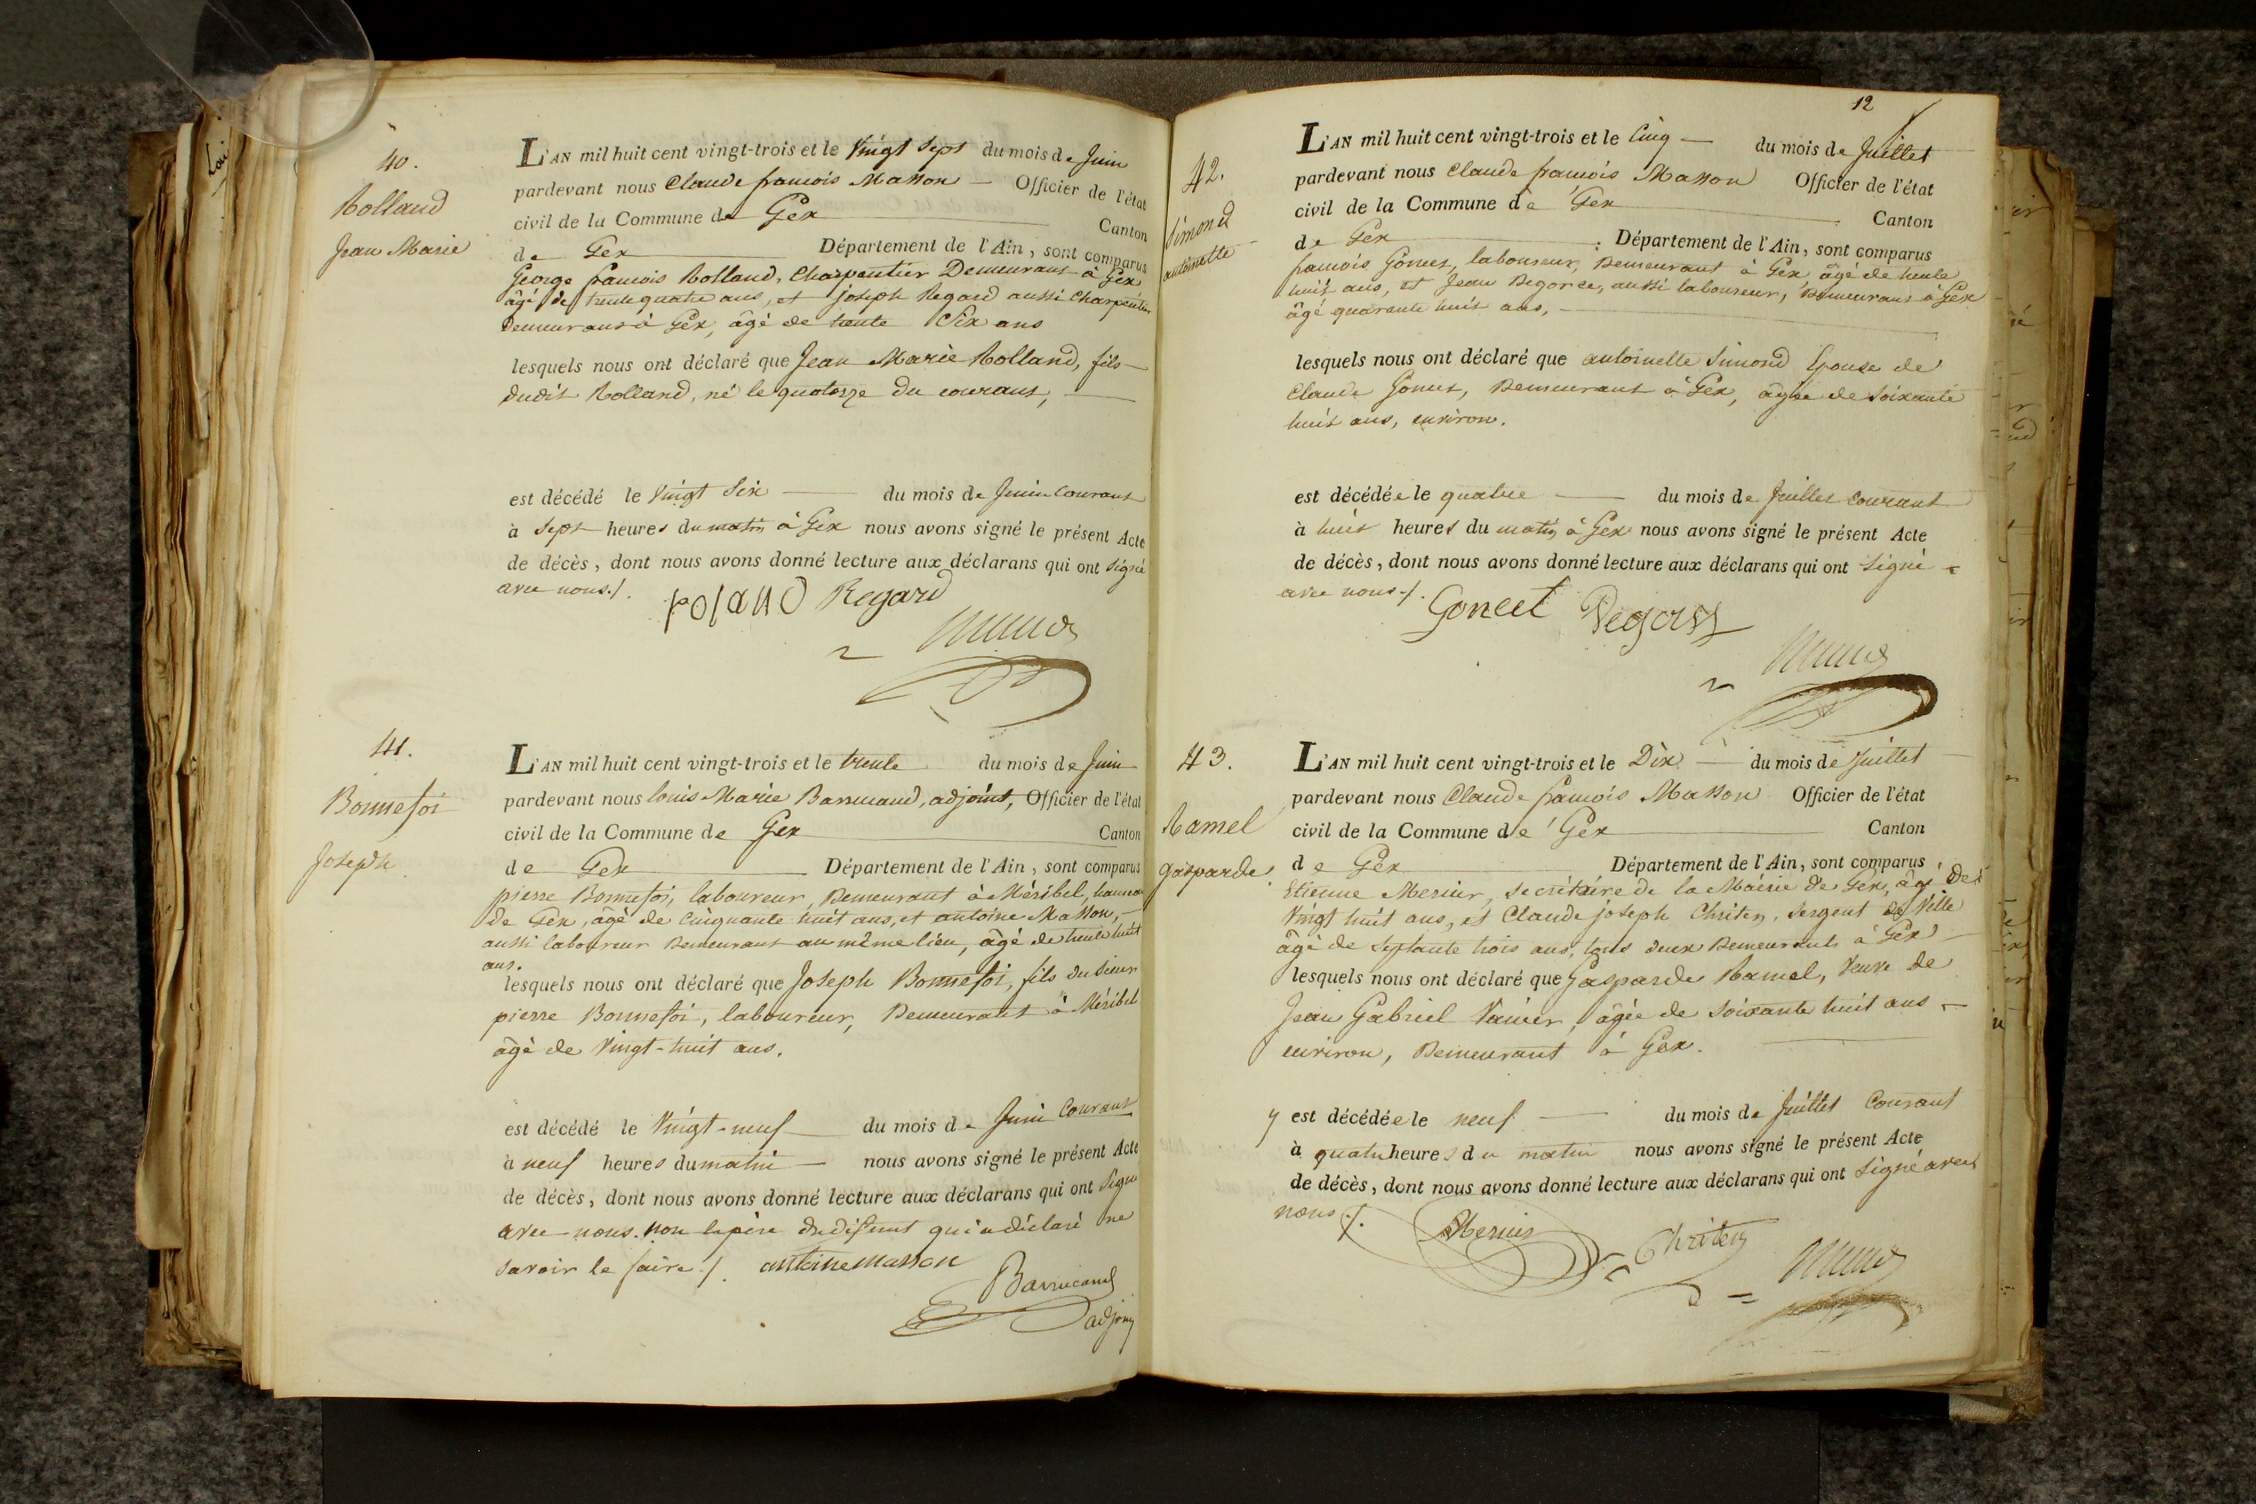 40.
Rolland
Jean Marie
L'AN mil huit cent vingt-trois et le Vingt Sept du mois de Juin
pardevant nous Claude françois Masson — Officier de l'état
civil de la Commune de Gex Canton
de Gex Département de l'Ain, sont comparus
George françois Rolland, Charpentier Demeurant à Gex
âgé de trente quatre ans, et joseph Regard aussi Charpentier
Demeurant à Gex, âgé de trente Six ans
lesquels nous ont déclaré que Jean Marie Rolland, fils
dudit Rolland, né le quatorze du courant,
est décédé le Vingt Six — du mois de Juin Courant
à Sept heures du matin à Gex nous avons signé le présent Acte
de décès, dont nous avons donné lecture aux déclarans qui ont signé
avec nous./.
roland Regard
41.
Bonnefoi
Joseph.
L'AN mil huit cent vingt-trois et le trente du mois de Juin
pardevant nous louis Marie Barrucand, adjoint, Officier de l'état
civil de la Commune de Gex Canton
de Gex Département de l'Ain, sont comparus
pierre Bonnefoi, laboureur, Demeurant à Méribel, hameau
de Gex, âgé de Cinquante huit ans, et antoine Masson,
aussi laboureur Demeurant au même lieu, âgé de trente huit
ans.
lesquels nous ont déclaré que Joseph Bonnefoi, fils du sieur
pierre Bonnefoi, laboureur, Demeurant à Méribel
âgé de Vingt-huit ans.
est décédé le Vingt-neuf du mois de Juin Courant
à neuf heures du matin — nous avons signé le présent Acte
de décès, dont nous avons donné lecture aux déclarans qui ont Signé
avec nous. non le père du défunt qui a déclaré ne
savoir le faire./. antoine masson
Barrucand
adjoint
12
42.
Simond
antoinette
L'AN mil huit cent vingt-trois et le Cinq — du mois de Juillet
pardevant nous Claude françois Masson Officier de l'état
civil de la Commune de Gex Canton
de Gex Département de l'Ain, sont comparus
françois Gonet, laboureur, Demeurant à Gex âgé de trente
huit ans, et Jean Degorce, aussi laboureur, Demeurant à Gex
âgé quarante huit ans,
lesquels nous ont déclaré que antoinette Simond Epouse de
Claude Gonet, Demeurant à Gex, âgée de soixante
huit ans, environ.
est décédée le quatre — du mois de Juillet courant
à huit heures du matin à Gex nous avons signé le présent Acte
de décès, dont nous avons donné lecture aux déclarans qui ont signé
avec nous./.
Goncet
43.
Ramel
gasparde
L'AN mil huit cent vingt-trois et le Dix — du mois de Juillet
pardevant nous Claude françois Masson Officier de l'état
civil de la Commune de Gex Canton
de Gex Département de l'Ain, sont comparus
Etienne Mercier, secrétaire de la Mairie de Gex, âgé de
Vingt huit ans, et Claude joseph Chriten, Sergent de Ville
âgé de Septante trois ans, tous deux Demeurants à Gex
lesquels nous ont déclaré que Gasparde Ramel, Veuve de
Jean Gabriel Vanier, âgée de soixante huit ans
environ, Demeurant à Gex.
y est décédée le neuf — du mois de Juillet Courant
à quatre heures du matin nous avons signé le présent Acte
de décès, dont nous avons donné lecture aux déclarans qui ont signé avec
nous./.
Mercier Chriten